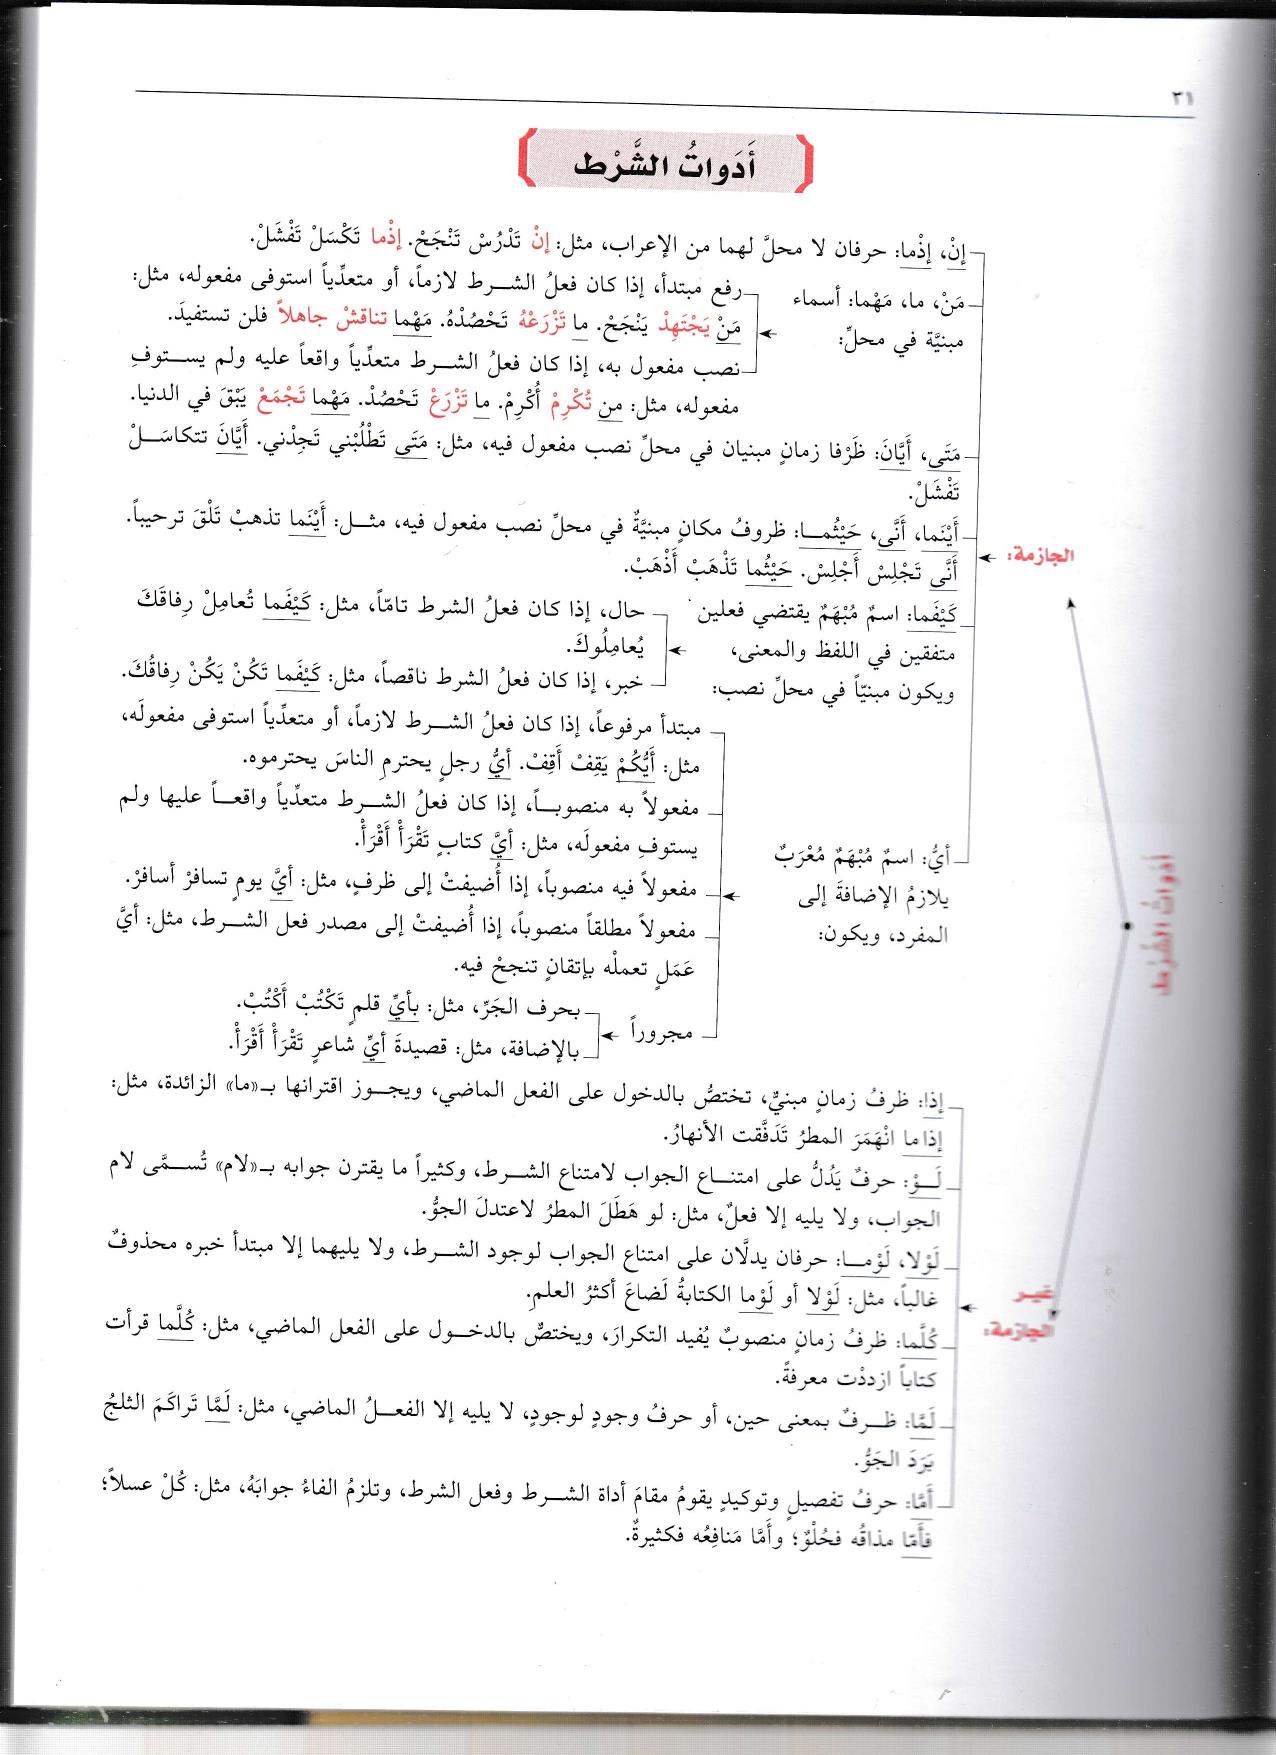 ٣١
أَدَواتُ الشَّرْط
إنْ، إذْما: حرفان لا محلَّ لهما من الإعراب، مثل: إنْ تَدْرُسْ تَنْجَحْ. إذْما تَكْسَلْ تَفْشَلْ.
مَنْ، ما، مَهْما: أسماء
مبنيَّة في محلِّ:
رفع مبتدأ، إذا كان فعلُ الشرط لازماً، أو متعدِّياً استوفى مفعوله، مثل:
مَنْ يَجْتَهِدْ يَنْجَحْ. ما تَزْرَعْهُ تَحْصُدْهُ. مَهْما تناقشْ جاهلاً فلن تستفيدَ.
نصب مفعول به، إذا كان فعلُ الشرط متعدِّياً واقعاً عليه ولم يستوفِ
مفعوله، مثل: من تُكْرِمْ أُكْرِمْ. ما تَزْرَعْ تَحْصُدْ. مَهْما تَجْمَعْ يَبْقَ في الدنيا.
مَتَى، أَيَّانَ: ظَرْفا زمانٍ مبنيان في محلِّ نصب مفعول فيه، مثل: مَتَى تَطْلُبْني تَجِدْني. أَيَّانَ تتكاسَلْ
تَفْشَلْ.
أَيْنَما، أَنَّى، حَيْثُما: ظروفُ مكانٍ مبنيَّةٌ في محلِّ نصب مفعول فيه، مثل: أَيْنَما تذهبْ تَلْقَ ترحيباً.
أَنَّى تَجْلِسْ أَجْلِسْ. حَيْثُما تَذْهَبْ أَذْهَبْ.
الجازمة:
كَيْفَما: اسمٌ مُبْهَمٌ يقتضي فعلين
متفقين في اللفظ والمعنى،
ويكون مبنيّاً في محلِّ نصب:
حال، إذا كان فعلُ الشرط تامّاً، مثل: كَيْفَما تُعامِلْ رِفاقَكَ
يُعامِلُوكَ.
خبر، إذا كان فعلُ الشرط ناقصاً، مثل: كَيْفَما تَكُنْ يَكُنْ رِفاقُكَ.
أيُّ: اسمٌ مُبْهَمٌ مُعْرَبٌ
يلازمُ الإضافةَ إلى
المفرد، ويكون:
مبتدأ مرفوعاً، إذا كان فعلُ الشرط لازماً، أو متعدِّياً استوفى مفعولَه،
مثل: أَيُّكُمْ يَقِفْ أَقِفْ. أيُّ رجلٍ يحترمِ الناسَ يحترموه.
مفعولاً به منصوباً، إذا كان فعلُ الشرط متعدِّياً واقعاً عليها ولم
يستوفِ مفعولَه، مثل: أيَّ كتابٍ تَقْرَأْ أَقْرَأْ.
مفعولاً فيه منصوباً، إذا أُضيفتْ إلى ظرفٍ، مثل: أيَّ يومٍ تسافرْ أسافرْ.
مفعولاً مطلقاً منصوباً، إذا أُضيفتْ إلى مصدر فعل الشرط، مثل: أيَّ
عَمَلٍ تعملْه بإتقانٍ تنجحْ فيه.
مجروراً
بحرف الجَرِّ، مثل: بأيِّ قلمٍ تَكْتُبْ أَكْتُبْ.
بالإضافة، مثل: قصيدةَ أيِّ شاعرٍ تَقْرَأْ أَقْرَأْ.
أدواتُ الشَّرط
إذا: ظرفُ زمانٍ مبنيٌّ، تختصُّ بالدخول على الفعل الماضي، ويجوز اقترانها بـ«ما» الزائدة، مثل:
إذا ما انْهَمَرَ المطرُ تَدَفَّقت الأنهارُ.
لَوْ: حرفٌ يَدُلُّ على امتناع الجواب لامتناع الشرط، وكثيراً ما يقترن جوابه بـ«لام» تُسمَّى لام
الجواب، ولا يليه إلا فعلٌ، مثل: لو هَطَلَ المطرُ لاعتدلَ الجوُّ.
لَوْلا، لَوْما: حرفان يدلَّان على امتناع الجواب لوجود الشرط، ولا يليهما إلا مبتدأ خبره محذوفٌ
غالباً، مثل: لَوْلا أو لَوْما الكتابةُ لَضاعَ أكثرُ العلم.
غير
الجازمة:
كُلَّما: ظرفُ زمانٍ منصوبٌ يُفيد التكرارَ، ويختصُّ بالدخول على الفعل الماضي، مثل: كُلَّما قرأت
كتاباً ازددْت معرفةً.
لَمَّا: ظرفٌ بمعنى حين، أو حرفُ وجودٍ لوجودٍ، لا يليه إلا الفعلُ الماضي، مثل: لَمَّا تَراكَمَ الثلجُ
بَرَدَ الجَوُّ.
أَمَّا: حرفُ تفصيلٍ وتوكيدٍ يقومُ مقامَ أداة الشرط وفعل الشرط، وتلزمُ الفاءُ جوابَهُ، مثل: كُلْ عسلاً؛
فأَمَّا مذاقُه فحُلْوٌ؛ وأَمَّا مَنافِعُه فكثيرةٌ.